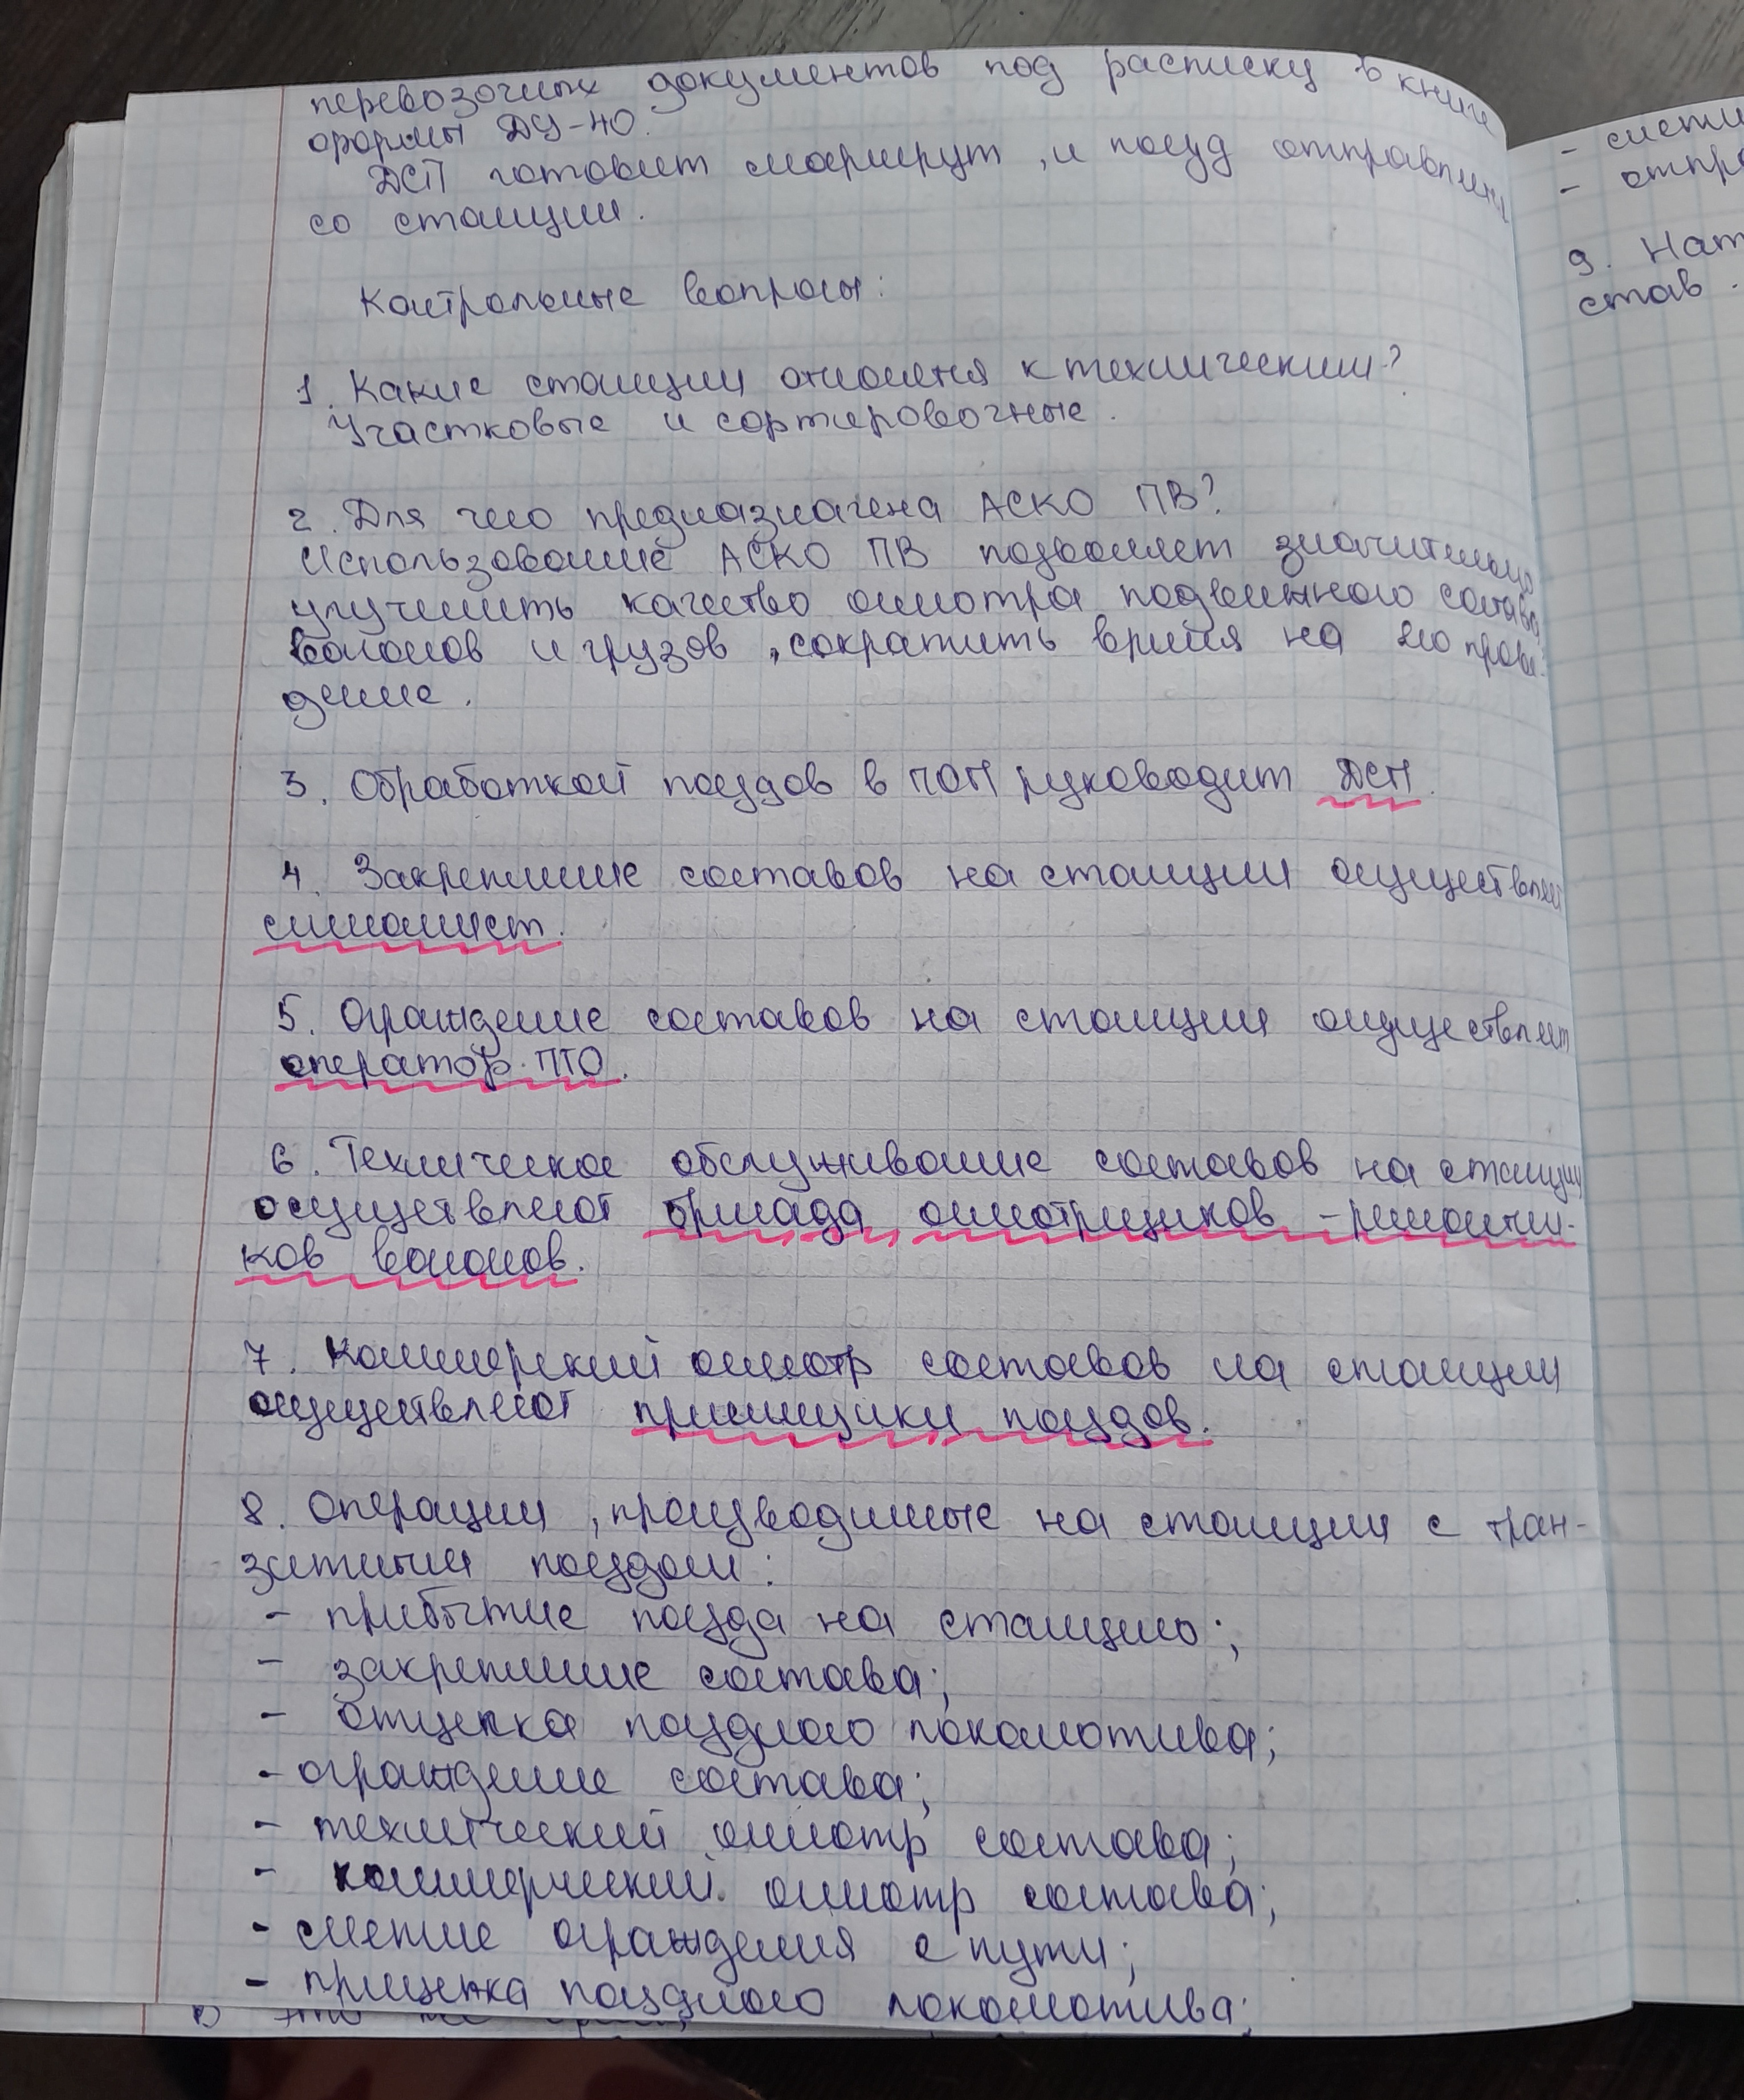 перевозочных документов под расписку в книге
формы ДУ-40.
ДСП готовит маршрут, и поезд отправлены
со станции.
Контрольные вопросы:
1. Какие станции относятся к техническим?
Участковые и сортировочные.
2. Для чего предназначена АСКО ПВ?
Использование АСКО ПВ позволяет значительно
улучшить качество осмотра подвижного состава
вагонов и грузов, сократить время на его прове-
дение.
3. Обработкой поездов в ПОП руководит ДСП.
4. Закрепление составов на станции осуществляет
сигналист.
5. Ограждение составов на станции осуществляет
оператор ПТО.
6. Техническое обслуживание составов на станции
осуществляют бригада осмотрщиков-ремонтни-
ков вагонов.
7. Коммерский осмотр составов на станции
осуществляют приемщики поездов.
8. Операции, производимые на станции с тран-
зитным поездом:
- прибытие поезда на станцию;
- закрепление состава;
- отцепка поездного локомотива;
- ограждение состава;
- технический осмотр состава;
- коммерческий осмотр состава;
- снятие ограждения с пути;
- прицепка поездного локомотива;
- сняти
- отпра
9. Нат
став.